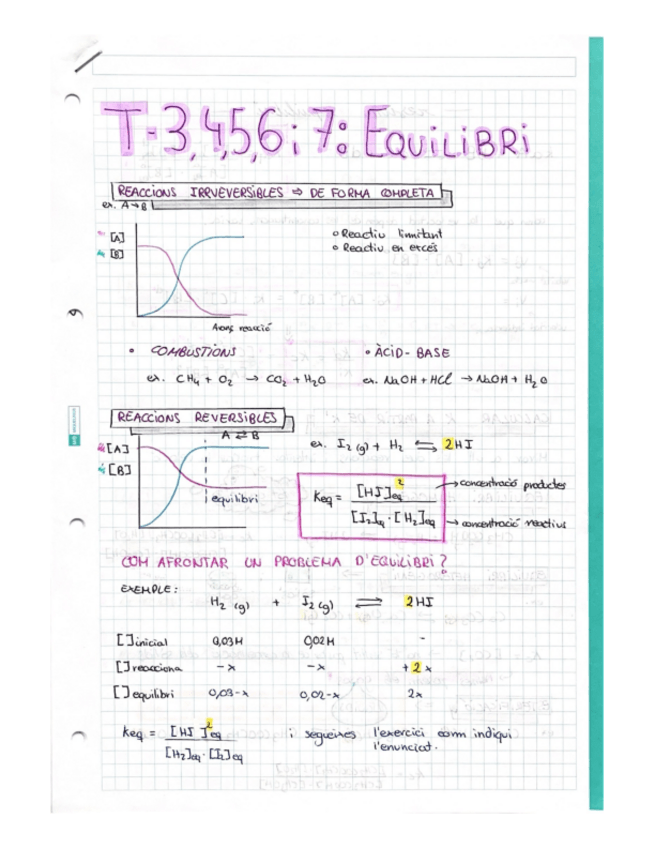 T-3,4,5,6 i 7: EQUILIBRI
REACCIONS IRRVEVERSIBLES ⇒ DE FORMA COMPLETA
ex. A→B
[A]
[B]
• Reactiu limitant
• Reactiu en excés
Avanç reacció
• COMBUSTIONS
ex. CH4 + O2 → CO2 + H2O
• ÀCID-BASE
ex. NaOH + HCl → NaOH + H2O
REACCIONS REVERSIBLES
A ⇄ B
[A]
[B]
equilibri
ex. I2 (g) + H2 ⇌ 2HI
Keq = [HI]²eq / [I2]eq · [H2]eq
→ concentració productes
→ concentració reactius
COM AFRONTAR UN PROBLEMA D'EQUILIBRI?
EXEMPLE:
H2 (g) + I2 (g) ⇌ 2HI
[ ] inicial 0,03M 0,02M -
[ ] reacciona -x -x +2x
[ ] equilibri 0,03-x 0,02-x 2x
Keq = [HI]²eq / [H2]eq · [I2]eq
i segueixes l'exercici com indiqui
l'enunciat.